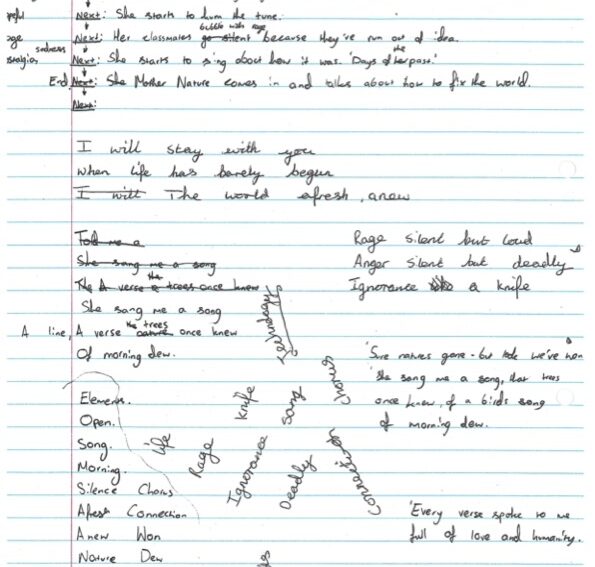 Next: She starts to hum the tune.
Next: Her classmates go silent bubble with rage because they've run out of idea.
sadness
Next: She starts to sing about how it was. 'Days of the past.'
End Next: She Mother Nature comes in and talks about how to fix the world.
Next:
I will stay with you
When life has barely begun
I will The world afresh, anew
Told me a
She sang me a song
The A verse the trees once knew
She sang me a song
A line, A verse the trees nature once knew
Of morning dew.
Rage silent but loud
Anger silent but deadly
Ignorance a knife
'Sure natures gone - but we've won
'She sang me a song, that trees
once knew, of a birds song
of morning dew.
'Every verse spoke to me
full of love and humanity.
Technology
Chorus
Knife
Sang
Life
Rage
Ignorance
Deadly
Connection
Elements.
Open.
Song.
Morning.
Silence Chorus
Afresh Connection
Anew Won
Nature Dew